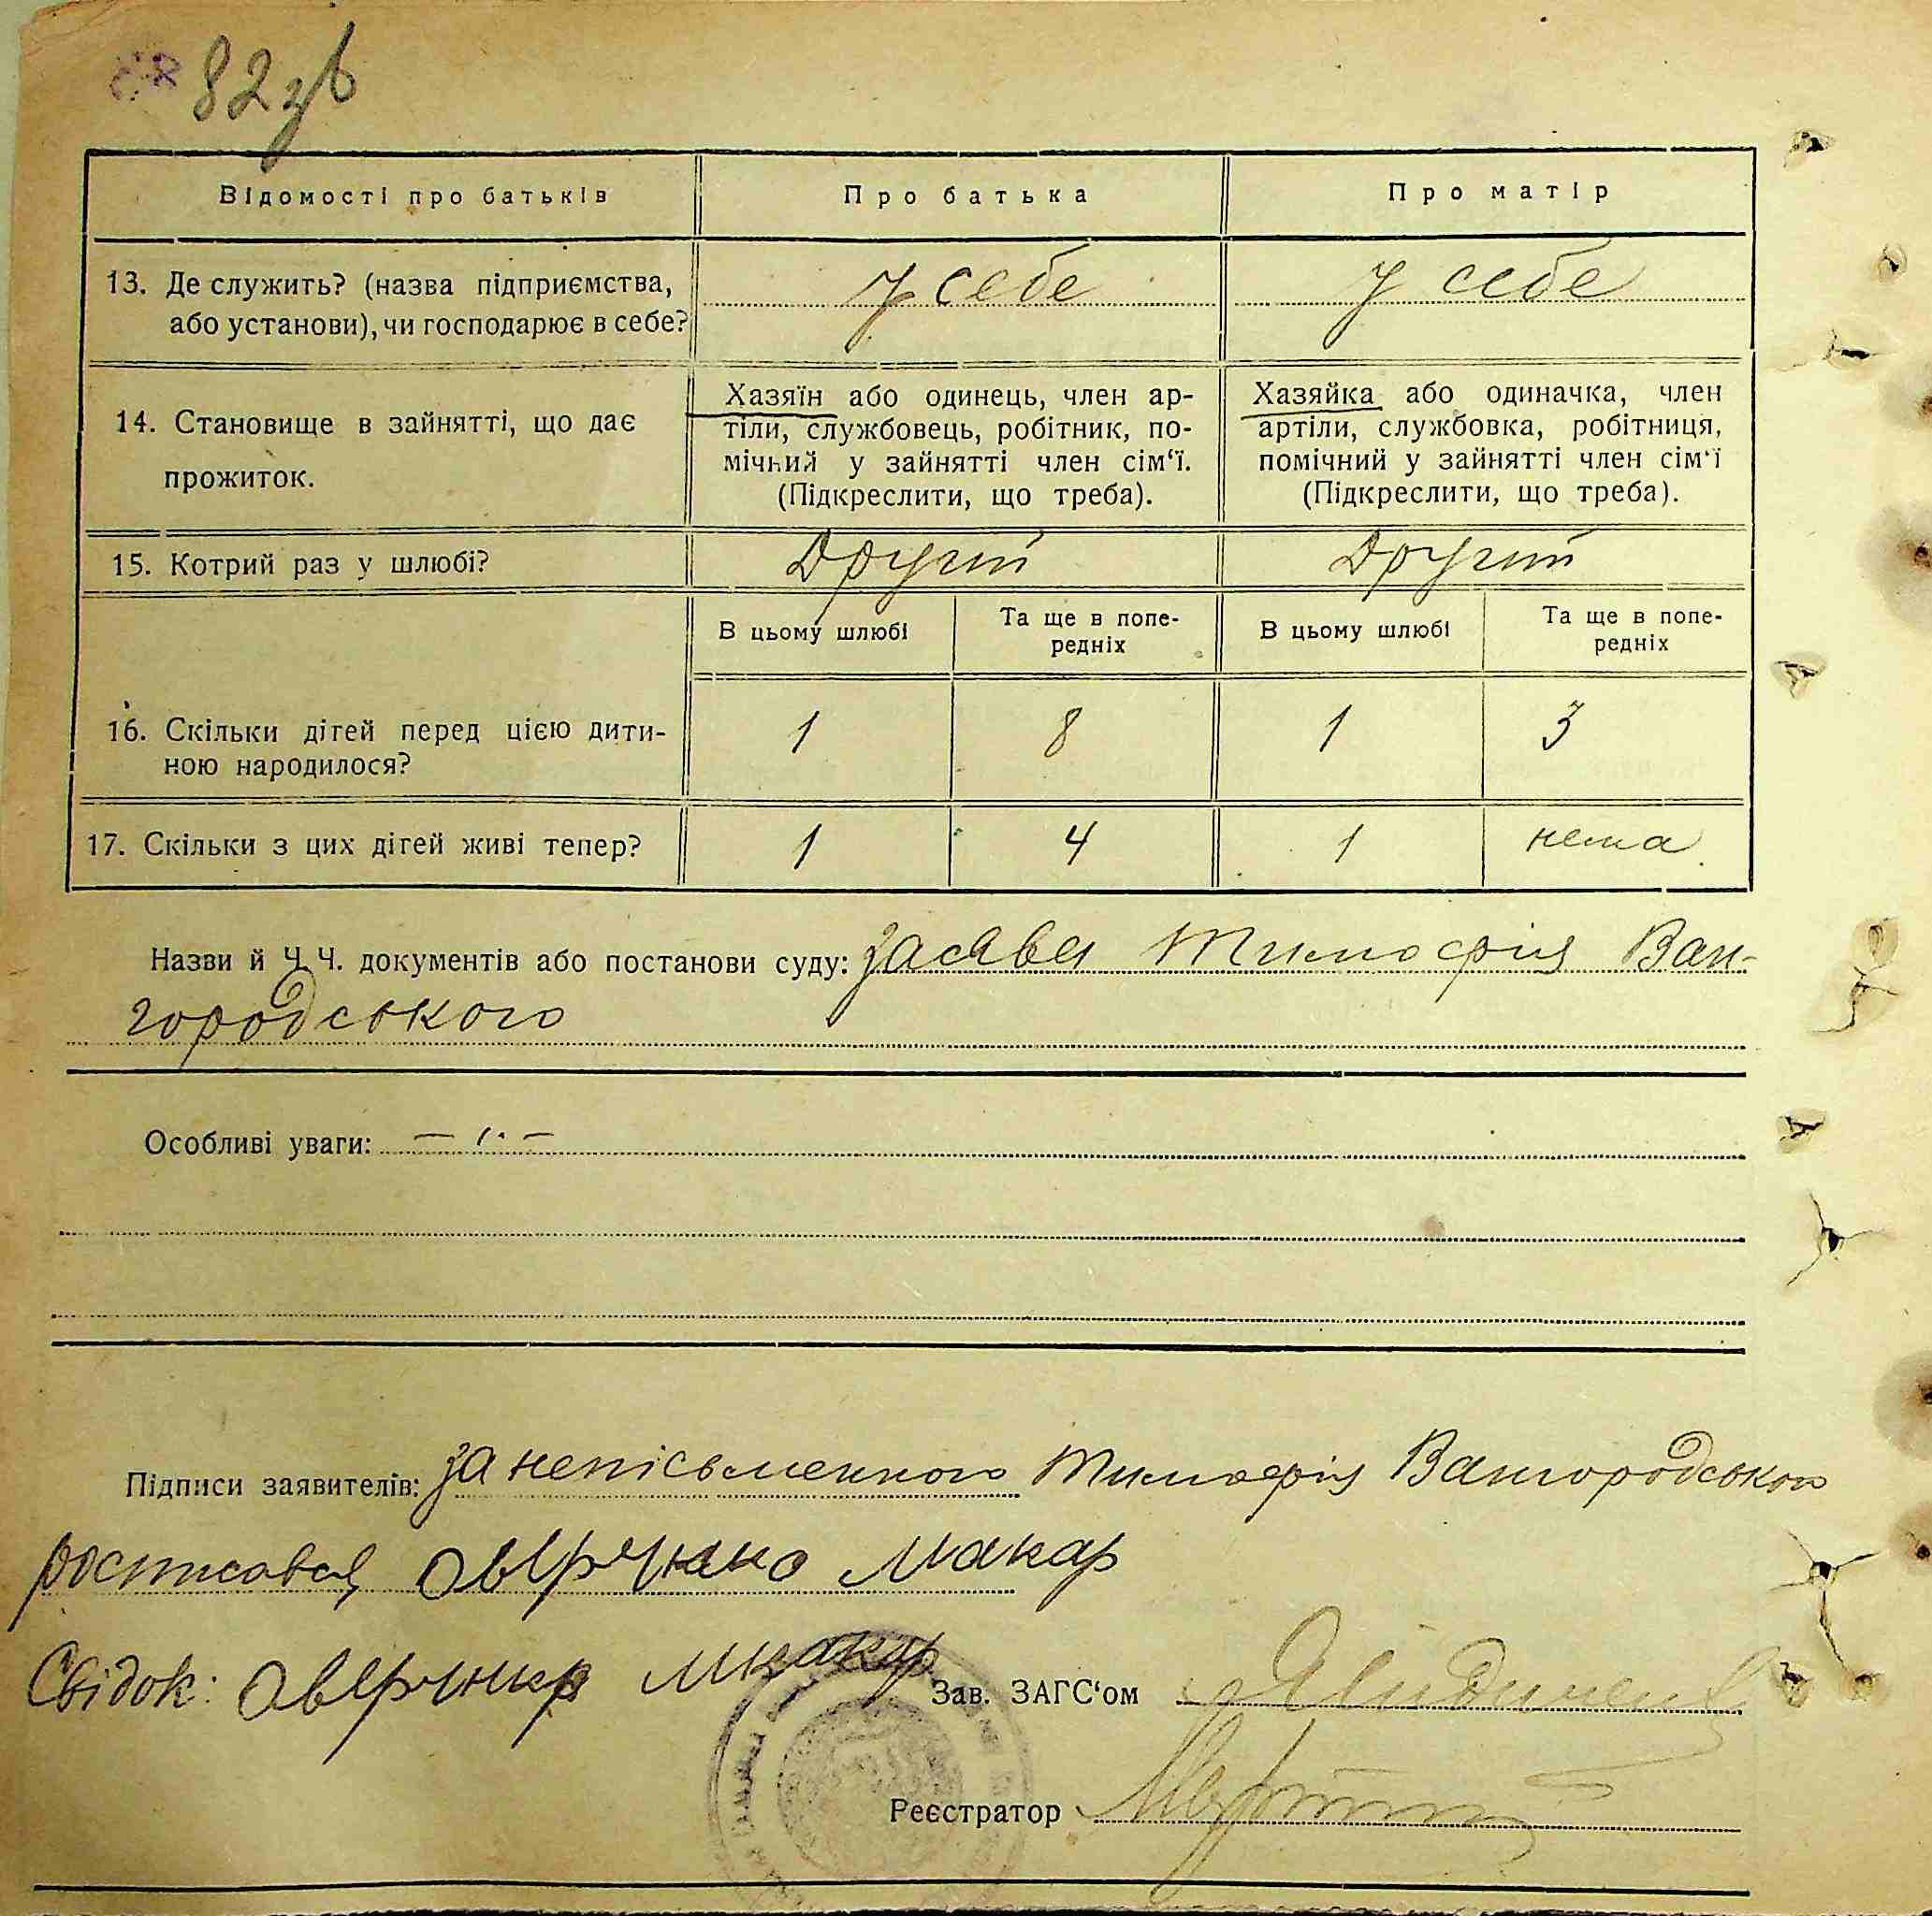 82 зв
Відомості про батьків
Про батька
Про матір
13. Де служить? (назва підприємства,
або установи), чи господарює в себе?
у себе
у себе
14. Становище в зайнятті, що дає
прожиток.
Хазяїн або одинець, член ар-
тіли, службовець, робітник, по-
мічний у зайнятті член сім‘ї.
(Підкреслити, що треба).
Хазяйка або одиначка, член
артіли, службовка, робітниця,
помічний у зайнятті член сім‘ї
(Підкреслити, що треба).
15. Котрий раз у шлюбі?
Другий
Другий
В цьому шлюбі
Та ще в попе-
редніх
В цьому шлюбі
Та ще в попе-
редніх
16. Скільки дітей перед цією дити-
ною народилося?
1
8
1
3
17. Скільки з цих дітей живі тепер?
1
4
1
нема
Назви й Ч.Ч. документів або постанови суду: заява Тимофія Ван-
городського
Особливі уваги:
Підписи заявителів: за неписьменного Тимофія Вангородського
росписався Оверченко Макар
Свідок: Макар
Зав. ЗАГС‘ом
Реєстратор